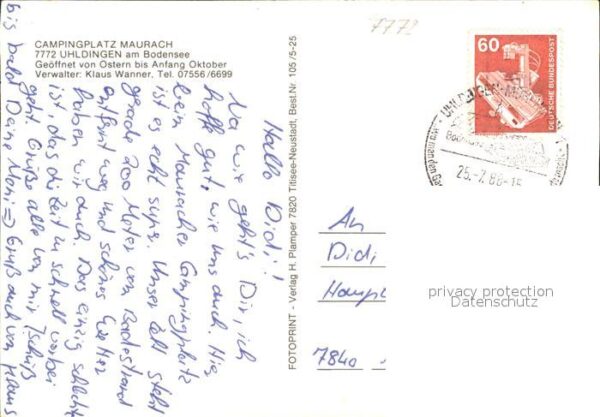 CAMPINGPLATZ MAURACH
7772 UHLDINGEN am Bodensee
Geöffnet von Ostern bis Anfang Oktober
Verwalter: Klaus Wanner, Tel. 07556/6699
7772
60
DEUTSCHE BUNDESPOST
25.-7.86-15
FOTOPRINT - Verlag H. Plamper 7820 Titisee-Neustadt, Best.Nr. 105
Hallo Didi!
Na wie geht's Dir, ich
hoffe gut, wie uns auch. Hier
beim Mauracher Campingplatz
ist es echt super. Unser Zelt steht
gerade 200 Meter vom Badestrand
entfernt weg und schönes Wetter
haben wir auch. Das einzig schlechte
ist, das die Zeit so schnell vorbei
geht. Grüße alle von mir Tschüß
bis bald Deine Moni => Gruß auch von Klaus
An
Didi
Hampl
7840
privacy protection
Datenschutz